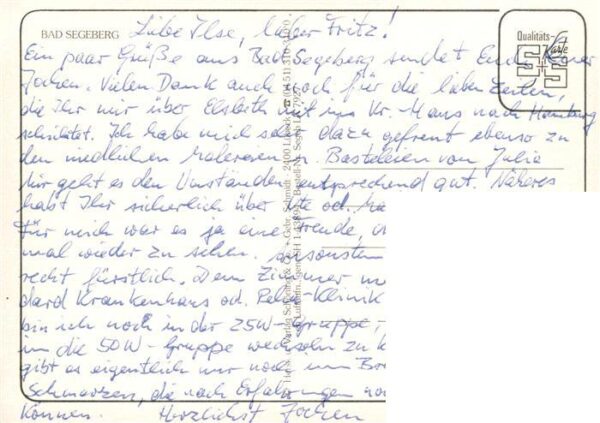 BAD SEGEBERG
Qualitäts-Karte
S+S
Liebe Ilse, lieber Fritz!
Ein paar Grüße aus Bad Segeberg sendet Euch Euer
Jochen. Vielen Dank auch noch für die lieben Zeilen,
die Ihr mir über Elsbeth mit ins Kr.-Haus nach Hamburg
schicktet. Ich habe mich sehr dazu gefreut ebenso zu
den niedlichen Malereien u. Basteleien von Julia
Mir geht es den Umständen entsprechend gut. Näheres
habt Ihr sicherlich über
Für mich war es ja eine Freude,
mal wieder zu sehen. ansonsten
recht fürstlich. Dem Zimmer
dard Krankenhaus od. Reha-Klinik
bin ich noch in der 25W-Gruppe
in die 50W-Gruppe wechseln zu
gibt es eigentlich nur noch
Schmerzen, die nach Erfahrungen
können. Herzlichst Jochen